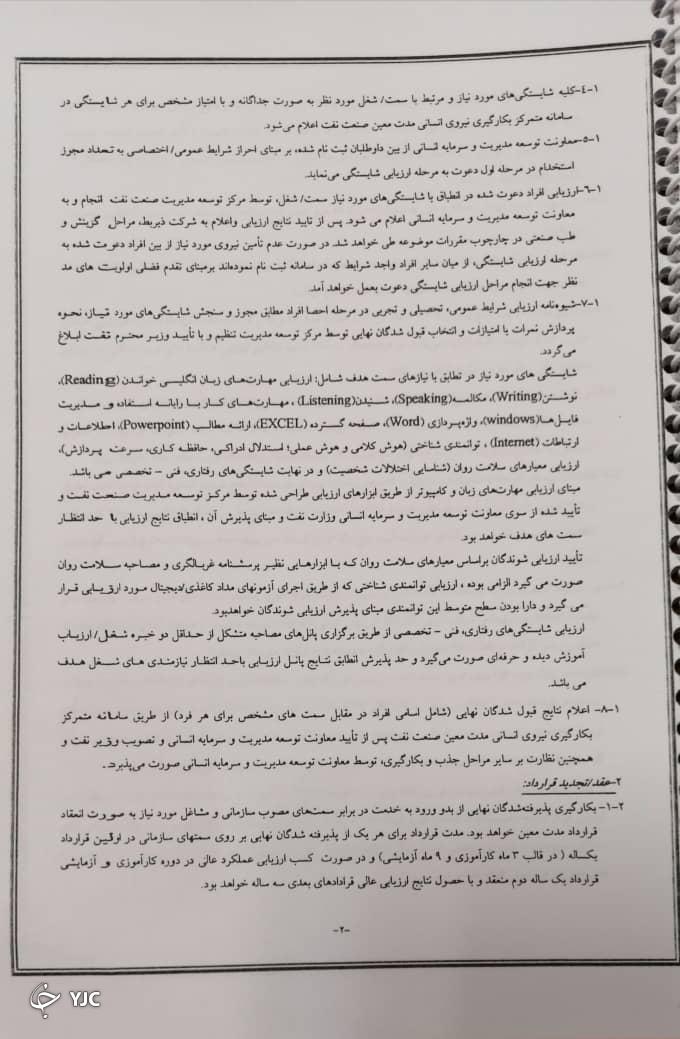 ۱-٤-کلیه شایستگی‌های مورد نیاز و مرتبط با سمت/ شغل مورد نظر به صورت جداگانه و با امتیاز مشخص برای هر شایستگی در
سامانه متمرکز بکارگیری نیروی انسانی مدت معین صنعت نفت اعلام می‌شود.
۱-۵-معاونت توسعه مدیریت و سرمایه انسانی از بین داوطلبان ثبت نام شده، بر مبنای احراز شرایط عمومی/ اختصاصی به تعداد مجوز
استخدام در مرحله اول دعوت به مرحله ارزیابی شایستگی می‌نماید.
۱-۶-ارزیابی افراد دعوت شده در انطباق با شایستگی‌های مورد نیاز سمت/ شغل، توسط مرکز توسعه مدیریت صنعت نفت انجام و به
معاونت توسعه مدیریت و سرمایه انسانی اعلام می شود. پس از تایید نتایج ارزیابی واعلام به شرکت ذیربط، مراحل گزینش و
طب صنعتی در چارچوب مقررات موضوعه طی خواهد شد. در صورت عدم تأمین نیروی مورد نیاز از بین افراد دعوت شده به
مرحله ارزیابی شایستگی، از میان سایر افراد واجد شرایط که در سامانه ثبت نام نموده‌اند برمبنای تقدم فضلی اولویت های مد
نظر جهت انجام مراحل ارزیابی شایستگی دعوت بعمل خواهد آمد.
۱-۷-شیوه‌نامه ارزیابی شرایط عمومی، تحصیلی و تجربی در مرحله احصا افراد مطابق مجوز و سنجش شایستگی‌های مورد نیاز، نحوه
پردازش نمرات یا امتیازات و انتخاب قبول شدگان نهایی توسط مرکز توسعه مدیریت تنظیم و با تأیید وزیر محترم نفت ابلاغ
می‌گردد.
شایستگی های مورد نیاز در تطابق با نیازهای سمت هدف شامل: ارزیابی مهارت‌های زبان انگلیسی خواندن (Reading)،
نوشتن(Writing)، مکالمه(Speaking)، شنیدن(Listening) ، مهارت‌های کار با رایانه استفاده و مدیریت
فایل‌ها(windows)، واژه‌پردازی (Word)، صفحه گسترده (EXCEL)، ارائه مطالب (Powerpoint)، اطلاعات و
ارتباطات (Internet) ، توانمندی شناختی (هوش کلامی و هوش عملی؛ استدلال ادراکی، حافظه کاری، سرعت پردازش)،
ارزیابی معیارهای سلامت روان (شناسایی اختلالات شخصیت) و در نهایت شایستگی‌های رفتاری، فنی – تخصصی می باشد.
مبنای ارزیابی مهارت‌های زبان و کامپیوتر از طریق ابزارهای ارزیابی طراحی شده توسط مرکز توسعه مدیریت صنعت نفت و
تأیید شده از سوی معاونت توسعه مدیریت و سرمایه انسانی وزارت نفت و مبنای پذیرش آن ، انطباق نتایج ارزیابی با حد انتظار
سمت های هدف خواهد بود.
تأیید ارزیابی شوندگان براساس معیارهای سلامت روان که با ابزارهایی نظیر پرسشنامه غربالگری و مصاحبه سلامت روان
صورت می گیرد الزامی بوده ، ارزیابی توانمندی شناختی که از طریق اجرای آزمونهای مداد کاغذی/دیجیتال مورد ارزیابی قرار
می گیرد و دارا بودن سطح متوسط این توانمندی مبنای پذیرش ارزیابی شوندگان خواهدبود.
ارزیابی شایستگی‌های رفتاری، فنی – تخصصی از طریق برگزاری پانل‌های مصاحبه متشکل از حداقل دو خبره شغل/ ارزیاب
آموزش دیده و حرفه‌ای صورت می‌گیرد و حد پذیرش انطابق نتایج پانل ارزیابی باحد انتظار نیازمندی های شغل هدف
می باشد.
۱-۸- اعلام نتایج قبول شدگان نهایی (شامل اسامی افراد در مقابل سمت های مشخص برای هر فرد) از طریق سامانه متمرکز
بکارگیری نیروی انسانی مدت معین صنعت نفت پس از تأیید معاونت توسعه مدیریت و سرمایه انسانی و تصویب وزیر نفت و
همچنین نظارت بر سایر مراحل جذب و بکارگیری، توسط معاونت توسعه مدیریت و سرمایه انسانی صورت می‌پذیرد.
۲-عقد/تجدید قرارداد:
۲-۱- بکارگیری پذیرفته‌شدگان نهایی از بدو ورود به خدمت در برابر سمت‌های مصوب سازمانی و مشاغل مورد نیاز به صورت انعقاد
قرارداد مدت معین خواهد بود. مدت قرارداد برای هر یک از پذیرفته شدگان نهایی بر روی سمتهای سازمانی در اولین قرارداد
یکساله ( در قالب ۳ ماه کارآموزی و ۹ ماه آزمایشی) و در صورت کسب ارزیابی عملکرد عالی در دوره کارآموزی و آزمایشی
قرارداد یک ساله دوم منعقد و با حصول نتایج ارزیابی عالی قرادادهای بعدی سه ساله خواهد بود.
-۲-
YJC